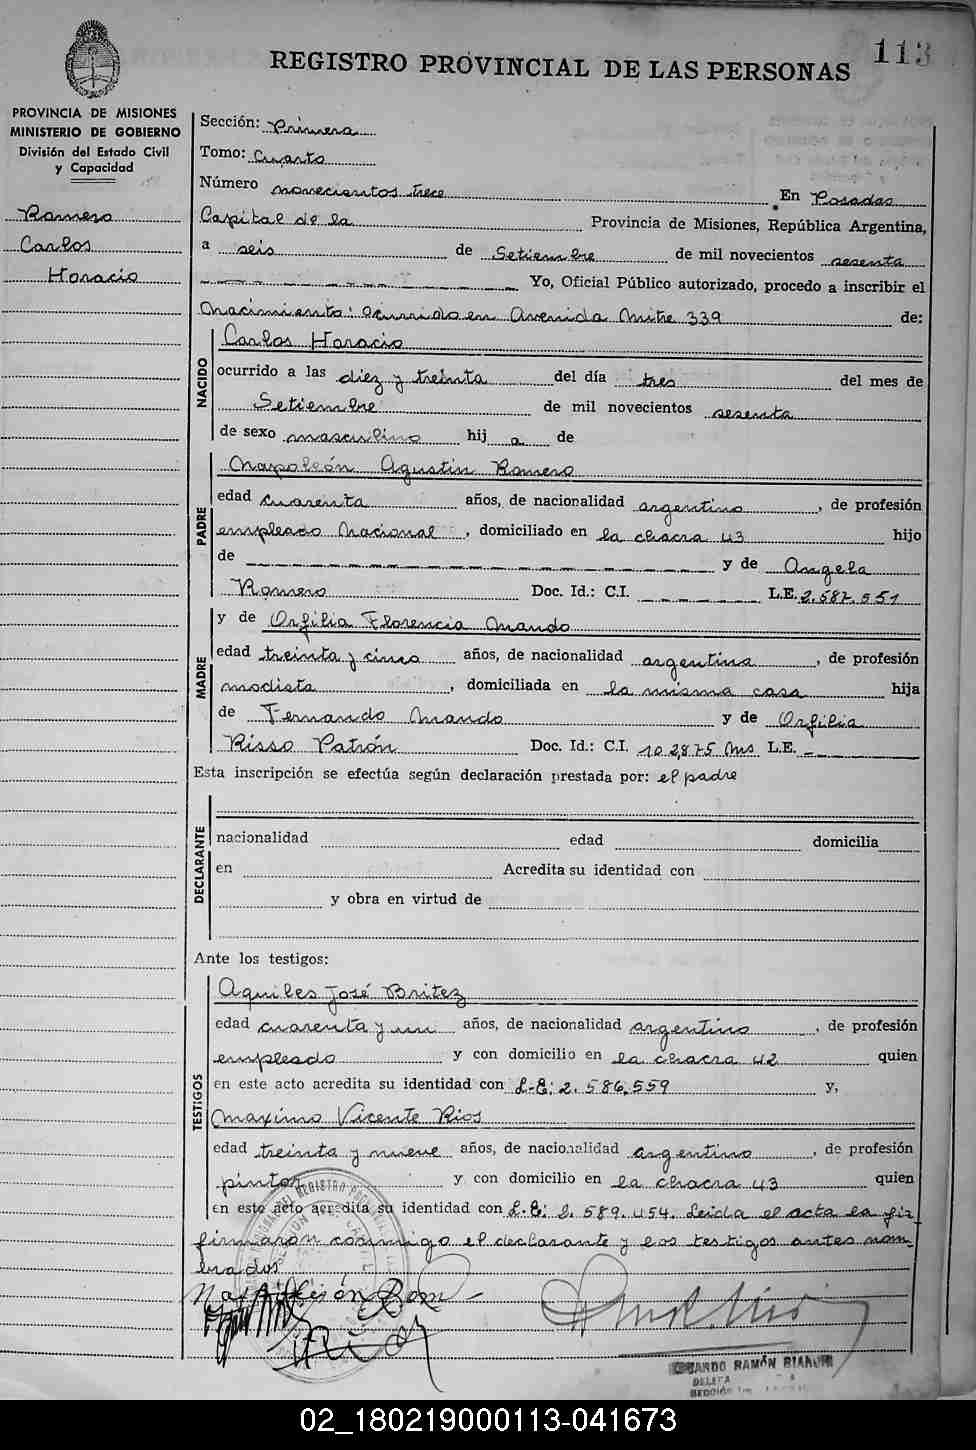 REGISTRO PROVINCIAL DE LAS PERSONAS
113
PROVINCIA DE MISIONES
MINISTERIO DE GOBIERNO
División del Estado Civil
y Capacidad
Romero
Carlos
Horacio
Sección: Primera
Tomo: Cuarto
Número novecientos trece En Posadas
Capital de la Provincia de Misiones, República Argentina,
a seis de Setiembre de mil novecientos sesenta
Yo, Oficial Público autorizado, procedo a inscribir el
Nacimiento: Ocurrido en Avenida Mitre 339 de:
NACIDO
Carlos Horacio
ocurrido a las diez y treinta del día tres del mes de
Setiembre de mil novecientos sesenta
de sexo masculino hij o de
PADRE
Napoleón Agustin Romero
edad cuarenta años, de nacionalidad argentino, de profesión
empleado Nacional, domiciliado en la chacra 43 hijo
de y de Angela
Romero Doc. Id.: C.I. L.E. 2.587.551
MADRE
y de Orfilia Florencia Mando
edad treinta y cinco años, de nacionalidad argentina, de profesión
modista, domiciliada en la misma casa hija
de Fernando Mando y de Orfilia
Risso Patrón Doc. Id.: C.I. 102,875 Mns L.E.
Esta inscripción se efectúa según declaración prestada por: el padre
DECLARANTE
nacionalidad edad domicilia
en Acredita su identidad con
y obra en virtud de
Ante los testigos:
TESTIGOS
Aquiles José Britez
edad cuarenta y un años, de nacionalidad argentino, de profesión
empleado y con domicilio en la chacra 42 quien
en este acto acredita su identidad con L.E: 2.586.559 y,
Maximo Vicente Rios
edad treinta y nueve años, de nacionalidad argentino, de profesión
pintor y con domicilio en la chacra 43 quien
en este acto acredita su identidad con L.E: 2.589.454. Leida el acta la fir
firmaron conmigo el declarante y los testigos antes nom-
brados
RAMÓN
02_180219000113-041673